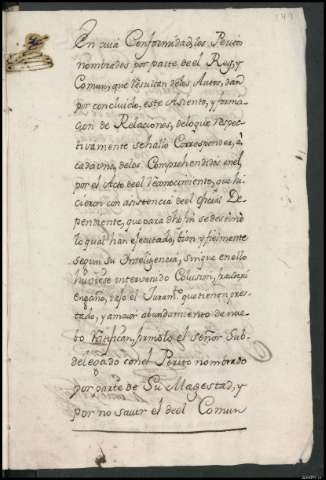 En cuia Conformidad, los Peritos
nombrados por parte de el Rey, y
Comun, que resultan de los Autos, dan
por concluido, este Asiento, y forma-
cion de Relaciones, de lo que respec-
tivamente se hallo Corresponder, â
cada una, de los Comprehendidos en el,
por el Acto de el reconocimiento, que hi-
cieron con asistencia de el oficial De-
pendiente, que para dho fin se destinó,
lo qual han ejecutado, bien y fielmente
segun su Inteligencia, sin que en ello
huviese intervenido Colusion, fraude, ni
engaño, vajo el Juramto que tienen pres-
tado, y a maior abundamiento de nue-
bo Ratifican, firmolo el señor Sub-
delegado con el Perito nombrado
por parte de Su Magestad, y
por no saver el de el Comun